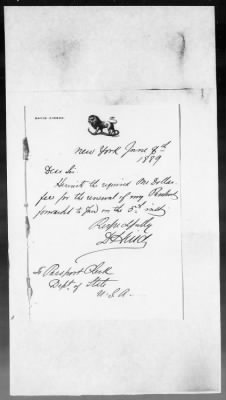 New York June 8th
1889
Dear Sir
Herewith the required One Dollar
fee for the renewal of my Passport
forwarded to you on the 5th inst
Respectfully
To Passport Clerk
Dept. of State
U.S.A.